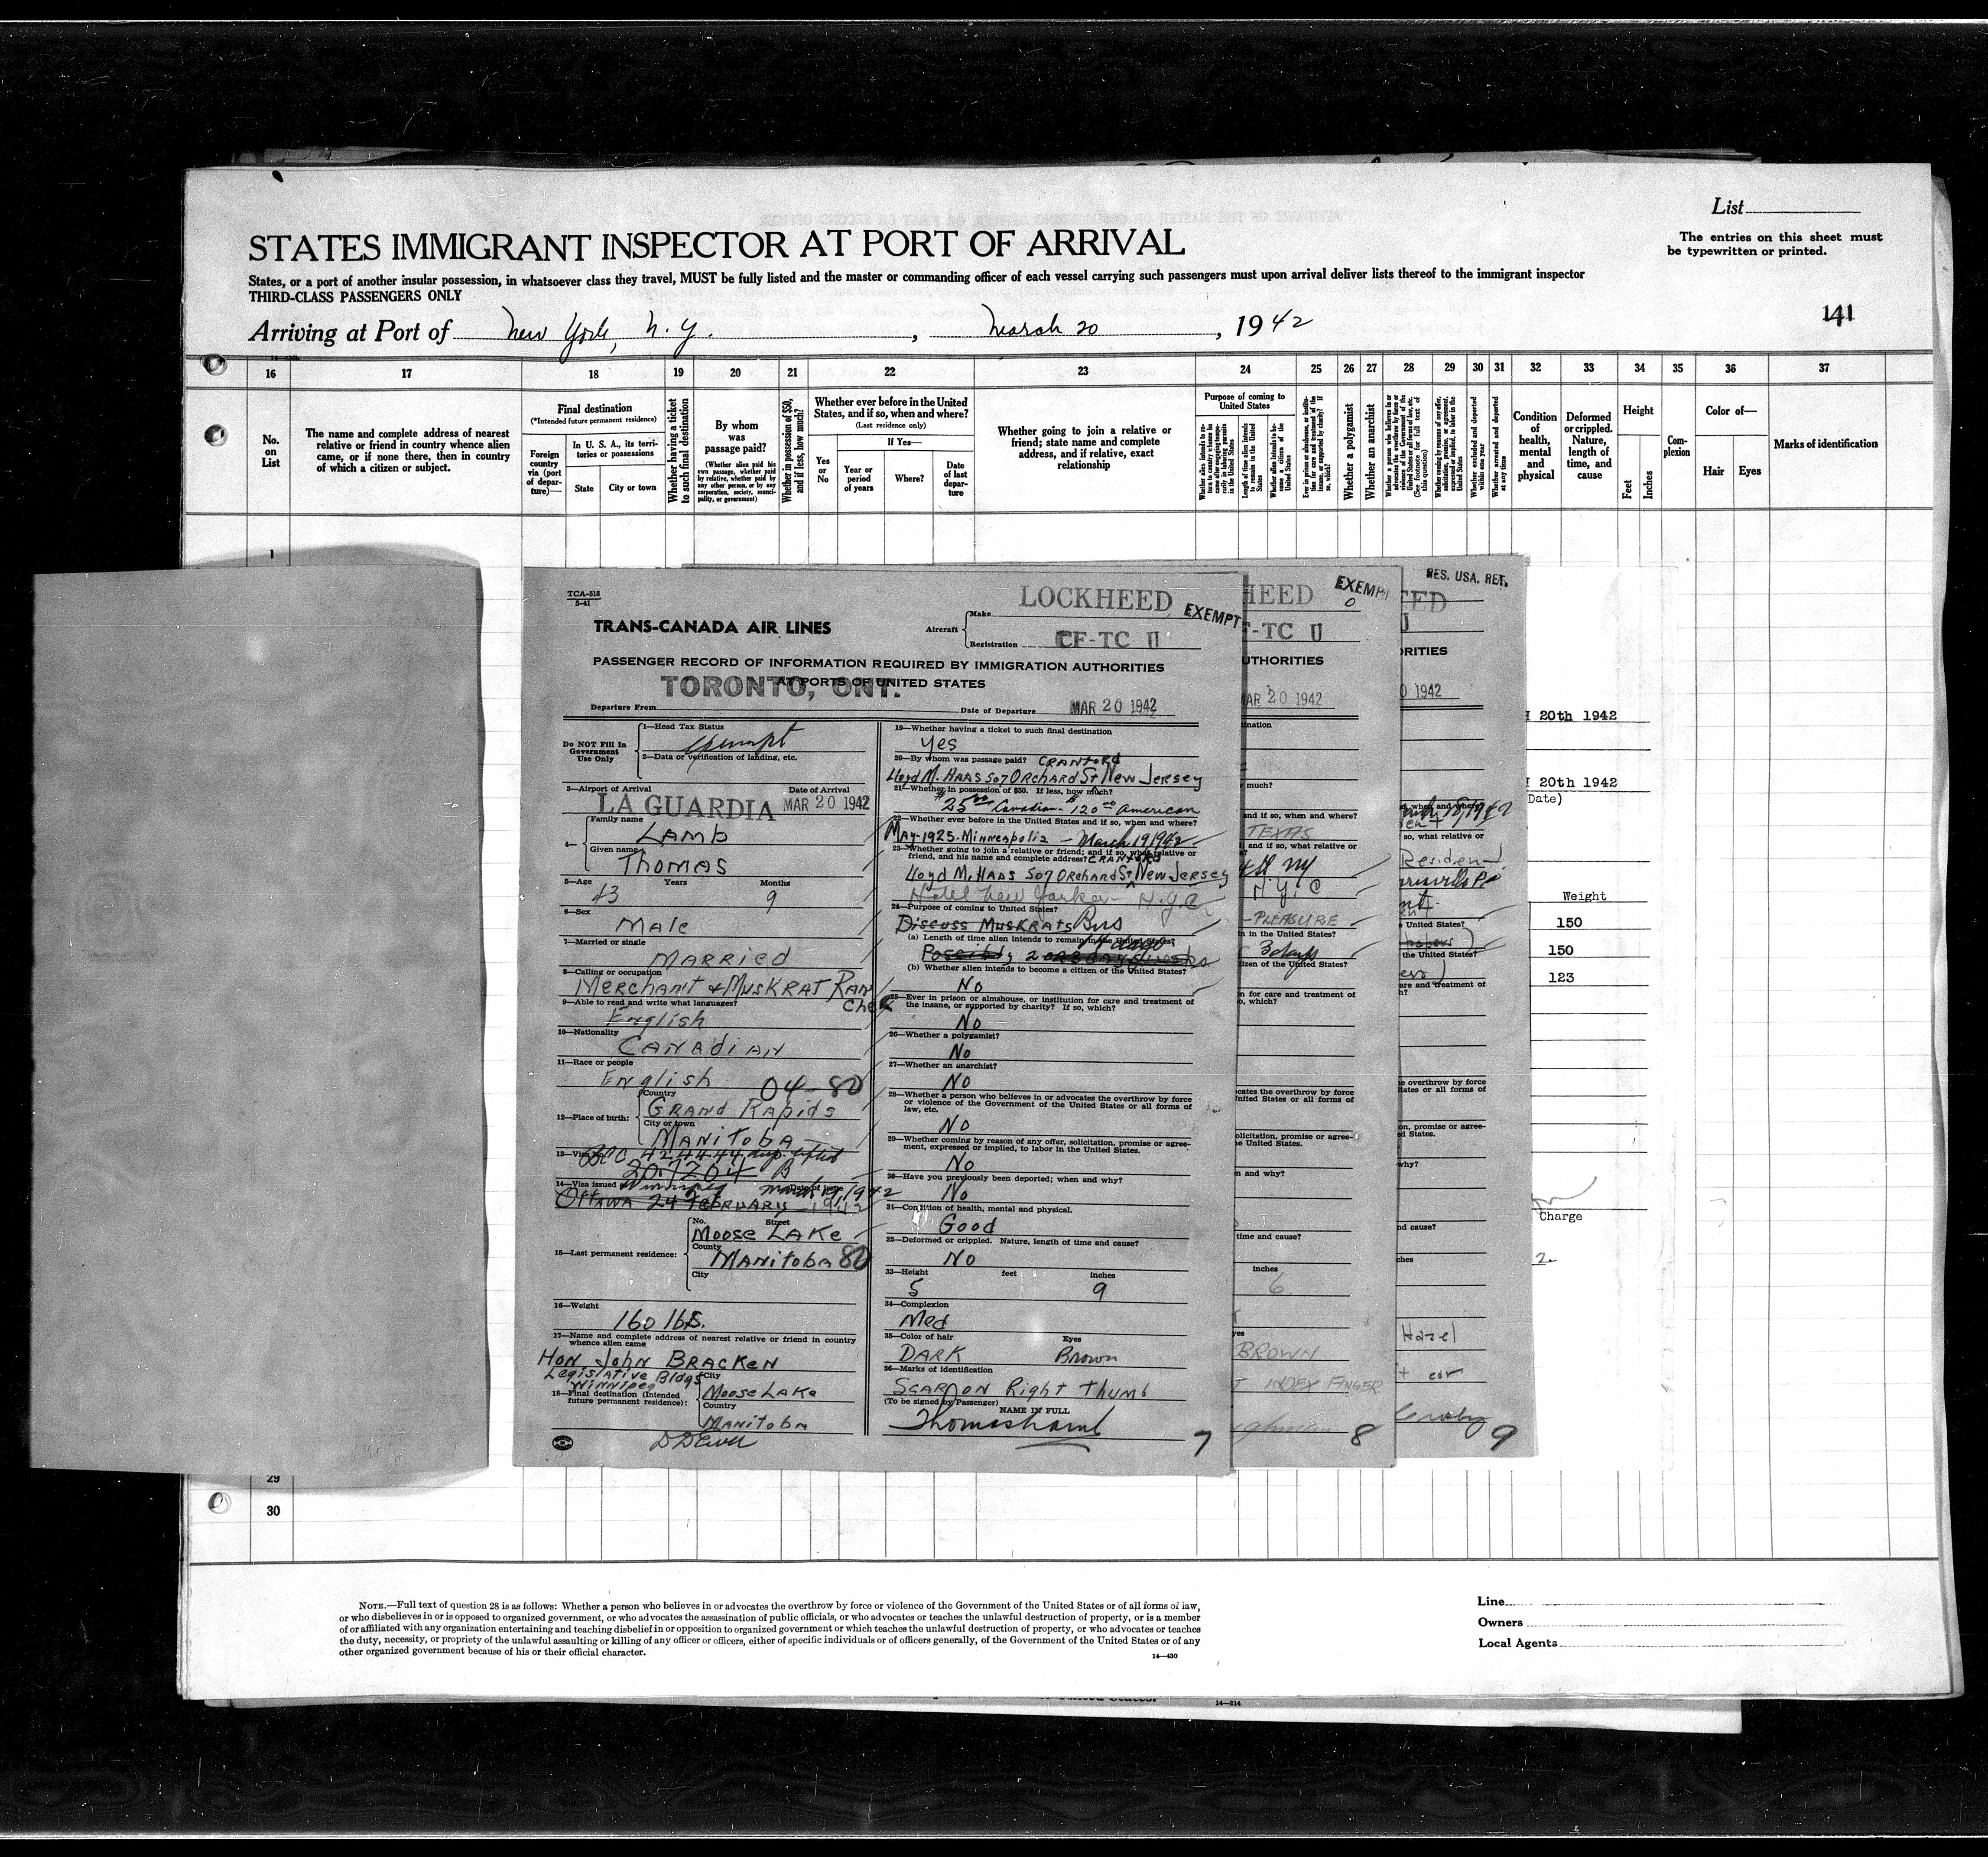 List
The entries on this sheet must
be typewritten or printed.
STATES IMMIGRANT INSPECTOR AT PORT OF ARRIVAL
States, or a port of another insular possession, in whatsoever class they travel, MUST be fully listed and the master or commanding officer of each vessel carrying such passengers must upon arrival deliver lists thereof to the immigrant inspector
THIRD-CLASS PASSENGERS ONLY
141
Arriving at Port of New York, N. Y. , March 20 , 1942
16 17 18 19 20 21 22 23 24 25 26 27 28 29 30 31 32 33 34 35 36 37
No. on List
The name and complete address of nearest
relative or friend in country whence alien
came, or if none there, then in country
of which a citizen or subject.
Final destination
(*Intended future permanent residence)
Foreign country via (port of departure)—
In U. S. A., its territories or possessions
State
City or town
Whether having a ticket to such final destination
By whom was passage paid?
(Whether alien paid his own passage, whether paid by relative, whether paid by any other person, or by any corporation, society, municipality, or government)
Whether in possession of $50, and if less, how much?
Whether ever before in the United States, and if so, when and where?
(Last residence only)
If Yes—
Yes or No
Year or period of years
Where?
Date of last departure
Whether going to join a relative or
friend; state name and complete
address, and if relative, exact
relationship
Purpose of coming to United States
Whether a polygamist
Whether an anarchist
Condition of health, mental and physical
Deformed or crippled. Nature, length of time, and cause
Height
Feet
Inches
Complexion
Color of—
Hair
Eyes
Marks of identification
1
TCA-518
5-41
TRANS-CANADA AIR LINES
Aircraft
Make LOCKHEED
EXEMPT
Registration CF-TC U
PASSENGER RECORD OF INFORMATION REQUIRED BY IMMIGRATION AUTHORITIES
AT PORTS OF UNITED STATES
Departure From TORONTO, ONT.
Date of Departure MAR 20 1942
Do NOT Fill In
Government
Use Only
1—Head Tax Status
exempt
2—Data or verification of landing, etc.
3—Airport of Arrival Date of Arrival
LA GUARDIA MAR 20 1942
4—
Family name
LAMB
Given name
Thomas
5—Age Years Months
43 9
6—Sex
Male
7—Married or single
MARRIED
8—Calling or occupation
Merchant & Muskrat Ran
cher
9—Able to read and write what languages?
English
10—Nationality
CANADIAN
11—Race or people
English 04-80
12—Place of birth:
Country
GRAND Rapids
City or town
MANitoba
424444
207204 B
14—Visa issued Date of issue
Winnipeg March 19, 1942
OTTAWA 24 FEBRUARY - 1942
15—Last permanent residence:
No. Street
Moose LAKe
County
MANitoba 80
City
16—Weight
160 lbs.
17—Name and complete address of nearest relative or friend in country
whence alien came
HON John BRACKEN
Legislative Bldgs
Winnipeg
18—Final destination (Intended
future permanent residence):
City
Moose LAKe
Country
MANitoba
19—Whether having a ticket to such final destination
Yes
20—By whom was passage paid? CRANFORD
Lloyd M. HAAS 507 ORCHARD St New Jersey
21—Whether in possession of $50. If less, how much?
$25 00 Canadian - $120 00 American
22—Whether ever before in the United States and if so, when and where?
May-1925-Minneapolis - March 19 1942
23—Whether going to join a relative or friend; and if so, what relative or
friend, and his name and complete address? CRANFORD
Lloyd M. HAAS 507 ORCHARD St New Jersey
Hotel New Yorker - N.Y.C.
24—Purpose of coming to United States?
Discuss MUSKRATS Bus
(a) Length of time alien intends to remain in the United States?
14 days
Possibly 2
(b) Whether alien intends to become a citizen of the United States?
No
25—Ever in prison or almshouse, or institution for care and treatment of
the insane, or supported by charity? If so, which?
No
26—Whether a polygamist?
No
27—Whether an anarchist?
No
28—Whether a person who believes in or advocates the overthrow by force
or violence of the Government of the United States or all forms of
law, etc.
No
29—Whether coming by reason of any offer, solicitation, promise or agree-
ment, expressed or implied, to labor in the United States.
No
30—Have you previously been deported; when and why?
No
31—Condition of health, mental and physical.
Good
32—Deformed or crippled. Nature, length of time and cause?
No
33—Height feet inches
5 9
34—Complexion
Med
35—Color of hair Eyes
DARK Brown
36—Marks of Identification
SCAR ON Right Thumb
(To be signed by Passenger)
NAME IN FULL
Thomas Lamb
7
EXEMPT
HEED
F-TC U
UTHORITIES
MAR 20 1942
TEXAS
N.Y.C
PLEASURE
3 days
inches
6
BROWN
INDEX FINGER
8
RES. USA. RET.
ORITIES
0 1942
Hazel
9
H 20th 1942
H 20th 1942
Date)
Weight
150
150
123
Charge
29
30
NOTE.—Full text of question 28 is as follows: Whether a person who believes in or advocates the overthrow by force or violence of the Government of the United States or of all forms of law,
or who disbelieves in or is opposed to organized government, or who advocates the assassination of public officials, or who advocates or teaches the unlawful destruction of property, or is a member
of or affiliated with any organization entertaining and teaching disbelief in or opposition to organized government or which teaches the unlawful destruction of property, or who advocates or teaches
the duty, necessity, or propriety of the unlawful assaulting or killing of any officer or officers, either of specific individuals or of officers generally, of the Government of the United States or of any
other organized government because of his or their official character.
14—430
Line
Owners
Local Agents
14—214